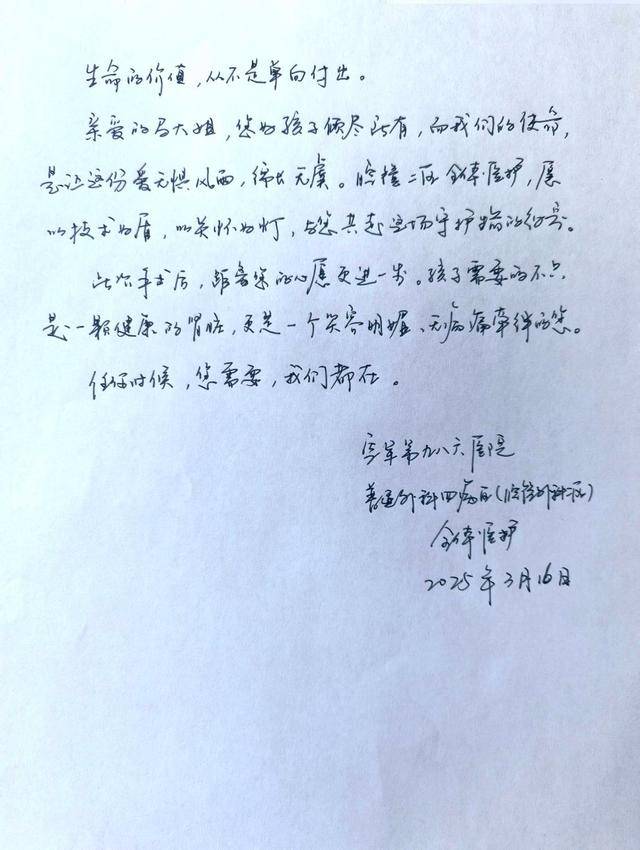 生命的价值，从不是单向付出。
亲爱的马大姐，您为孩子倾尽所有，而我们的使命，
是让这份爱无惧风雨，绵长无虞。腔镜二病区全体医护，愿
以技术为盾，以关怀为灯，与您共赴这场守护生命的约定。
此次手术后，距离您的心愿更进一步。孩子需要的不只
是一颗健康的肾脏，更是一个笑容明媚、无病痛牵绊的您。
任何时候，您需要，我们都在。
空军第九八六医院
普通外科四病区（腔镜外科二区）
全体医护
2025年3月16日